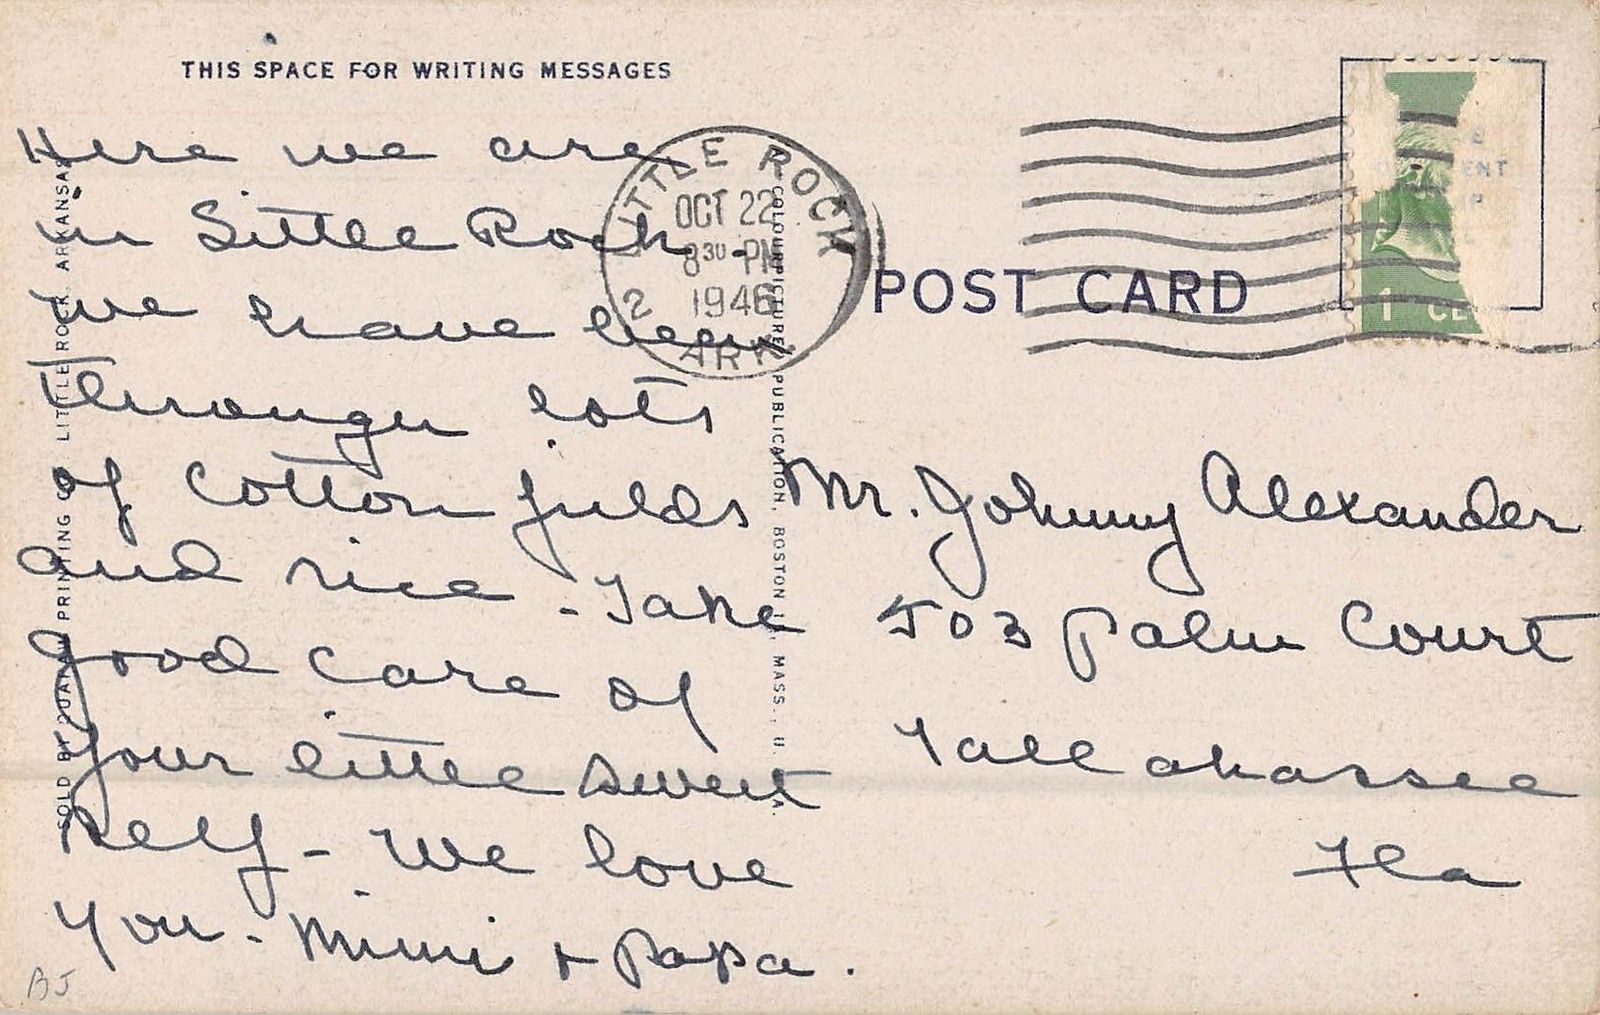 THIS SPACE FOR WRITING MESSAGES
Here we are
in Little Rock -
we have been
through lots
of cotton fields
and rice - Take
good care of
your little sweet
self - we love
you - Mimi + Papa.
BJ
LITTLE ROCK
OCT 22
8 30 PM
1946
2
ARK.
POST CARD
1 CE
Mr. Johnny Alexander
503 Palm Court
Tallahassee
Fla
COLOURPICTURE PUBLICATION, BOSTON MASS., U. A.
SOLD BY PRINTING LITTLE ROCK, ARKANSAS